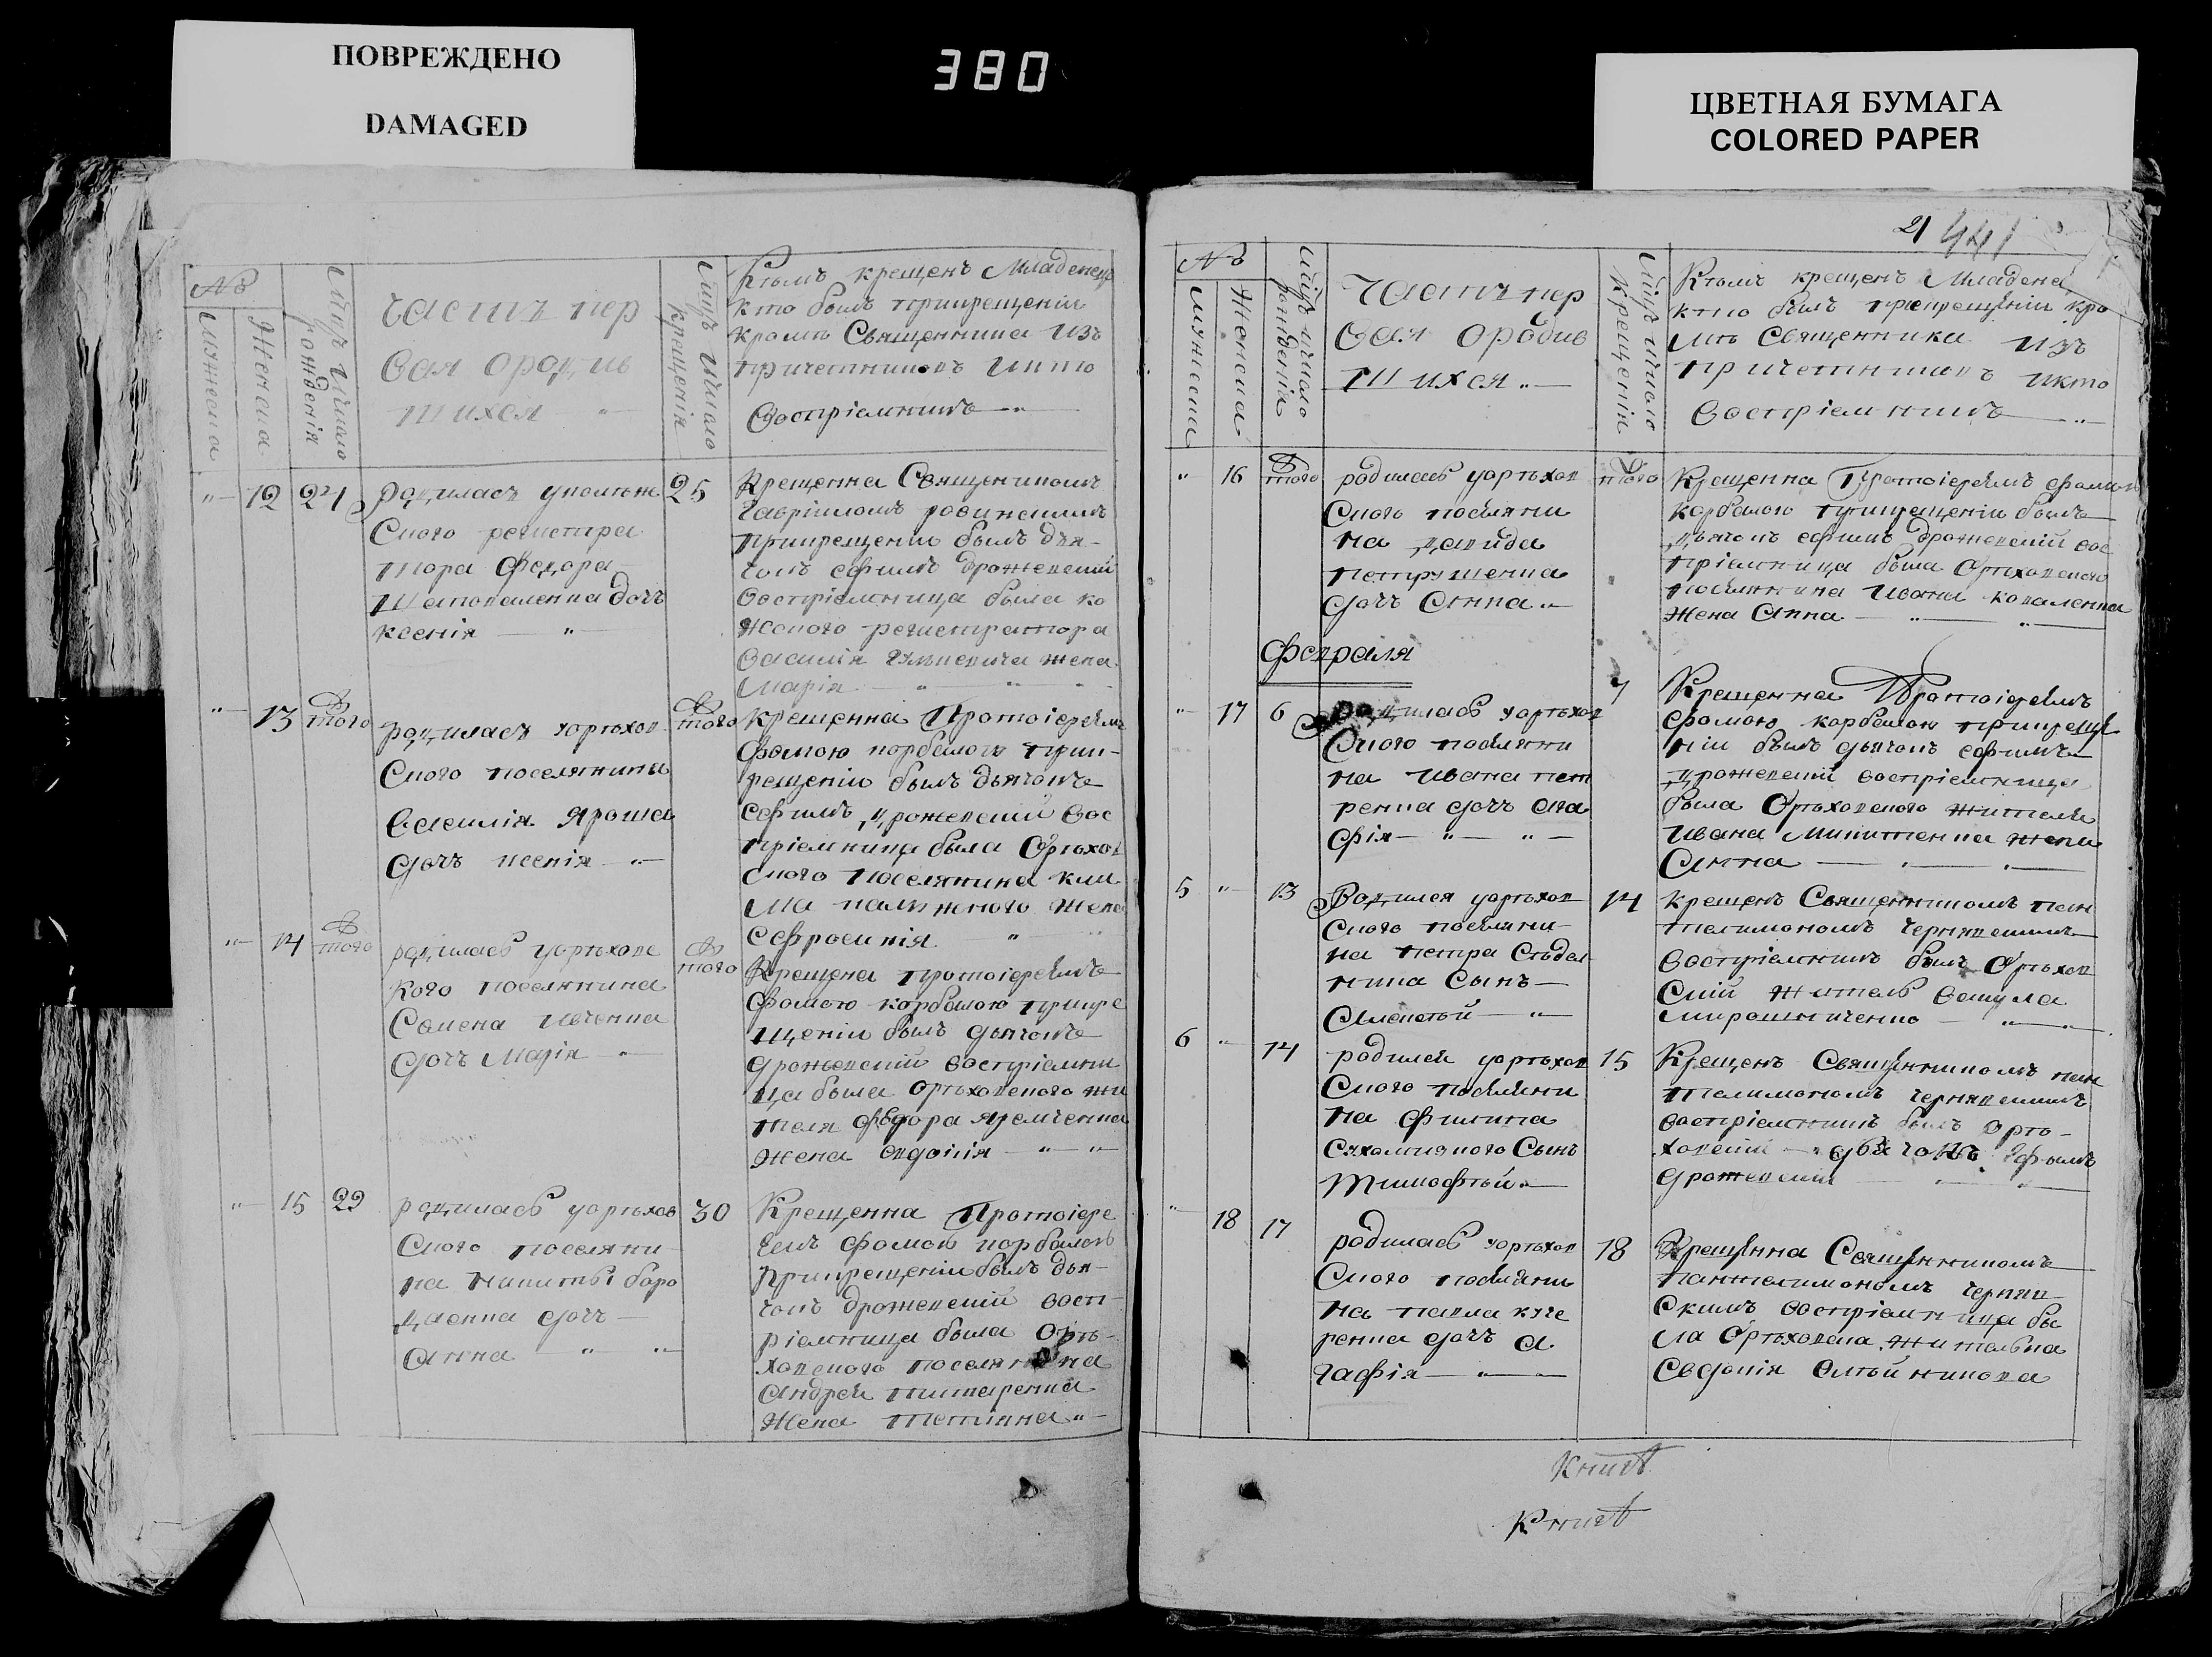 ПОВРЕЖДЕНО
DAMAGED
380
ЦВЕТНАЯ БУМАГА
COLORED PAPER
2 441
№
Мужеска
Женска
Мцъ ичисло рожденія
Часть пер
вая ородив
шихся
Мцъ ичисло крещенія
Кѣмъ крещенъ Младенецъ
кто былъ прикрещеніи
кромѣ Священника изъ
причетниковъ икто
воспріемникъ
12 24
родилась у
скаго регистра
тора Федора
Шаповаленка дочь
ксенія
25
Крещенна Священикомъ
Гавріиломъ
прикрещеніи былъ дья-
комъ ефимъ Дрожевскій
воспріемница была ко
регистратора
василія жена
Марія
13 того
родилась уорѣхов
скаго поселянина
василія Яроша
дочь ксенія
того
Крещенна Протоіереемъ
Фомою корбаною прик-
рещеніи былъ дьячокъ
ефимъ дрожевскій вос
пріемница была Орѣхов
скаго поселянина кли
ма жена
ефросинія
14 того
родилась уорѣховс
кого поселянина
Семена Ивченка
дочь Марія
того
Крещена протоіереемъ
Фомою корбаною прикре
щеніи былъ дьячокъ
дрожевскій воспріемни
ца была орѣховского жи
теля федора яремченка
жена евдокія
15 29
родилась уорѣхов
скаго поселяни
на никиты боро
даенка дочь
Анна
30
Крещенна Протоіере
емъ Фомою корбаною
прикрещеніи былъ дья-
чокъ дрожевскій восп
ріемница была Орѣ-
ховского поселянина
Андрея титаренка
жена татіянна
№
Мужеска
Женска
Мцъ ичисло рожденія
Часть пер
вая ородив
шихся
Мцъ ичисло крещенія
Кѣмъ крещенъ Младене
кто былъ прикрещеніи кро
мѣ Священника изъ
причетниковъ икто
воспріемникъ
16 того
родилась уорѣхов
скаго поселяни
на давида
петрушенка
дочь Анна
того
Крещенна Протоіереемъ фомою
корбаною прикрещеніи былъ
дьячокъ ефимъ дрожевскій вос
пріемница была Орѣховского
поселянина Ивана коваленка
жена Анна
Февраля
17 6
Родилась уорѣхов
скаго поселяни
на Ивана пет
ренка дочь ага
фія
7
Крещенна Протоіереемъ
фомою корбаною прикреще
ніи былъ дьячокъ ефимъ
дрожевскій воспріемница
была Орѣховского жителя
Ивана Никитенка жена
Анна
5 13
Родился уорѣхов
скаго поселяни
на петра
сынъ
Алексѣй
14
крещенъ Священникомъ пан
телимономъ чернявскимъ
воспріемникъ былъ Орѣхов
скій житель вакула
мирошниченко
6 14
родился уорѣхов
скаго поселяни
на филипа
сынъ
Тимофѣй
15
Крещенъ Священникомъ пан
телимономъ чернявскимъ
воспріемникъ былъ орѣ-
ховскій дьячокъ ефимъ
дрожевскій
18 17
родилась уорѣхов
скаго поселяни
на павла куче
ренка дочь а
гафія
18
Крещенна Священникомъ
пантелимономъ черняв-
скимъ воспріемница бы
ла Орѣховска жителька
Евдокія Олѣйникова